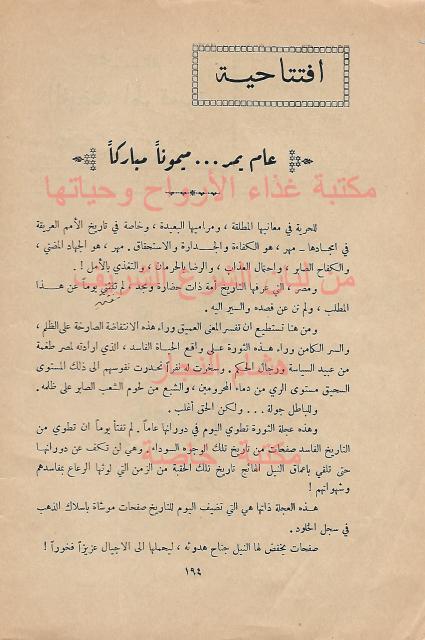 افتتاحية
عام يمر... ميموناً مباركاً
مكتبة غذاء الأرواح وحياتها
للحرية في معانيها المطلقة ، ومراميها البعيدة ، وخاصة في تاريخ الأمم العريقة
في امجادها ـ مهر ، هو الكفاءة والجدارة والاستحقاق . مهر ، هو الجهاد المضني ،
والكفاح الصابر ، واحتمال العذاب ، والرضا بالحرمان ، والتغذي بالأمل !.
ومصر ، التي عرفها التاريخ أمة ذات حضارة ومجد لم تلتفت يوماً عن هذا
المطلب ، ولم تن عن قصده والسير اليه .
ومن هنا تستطيع ان تفسر المعنى العميق وراء هذه الانتفاضة الصارخة على الظلم ،
والسر الكامن وراء هذه الثورة على واقع الحياة الفاسد ، الذي ارادته لمصر طغمة
من عبيد السياسة ورجال الحكم . وسخرت له نفراً تحدرت نفوسهم الى ذلك المستوى
السحيق مستوى الري من دماء المحرومين ، والشبع من لحوم الشعب الصابر على ظلمه .
هشام النجار
وللباطل جولة ... ولكن الحق أغلب .
وهذه عجلة الثورة تطوي اليوم في دورانها عاماً . لم تفتأ يوماً ان تطوي من
التاريخ الفاسد صفحات من تاريخ تلك الوجوه السوداء . وهي لن تكف عن دورانها
مكتبة خاصة
حتى تلقي باعماق النيل الهائج تاريخ تلك الحقبة من الزمن التي لوثها الرعاع بمفاسدهم
وشهواتهم !
هذه العجلة ذاتها هي التي تضيف اليوم للتاريخ صفحات موشاة باسلاك الذهب
في سجل الخلود .
صفحات يخفض لها النيل جناح هدوئه ، ليحملها الى الاجيال عزيزاً فخوراً !
١٩٤